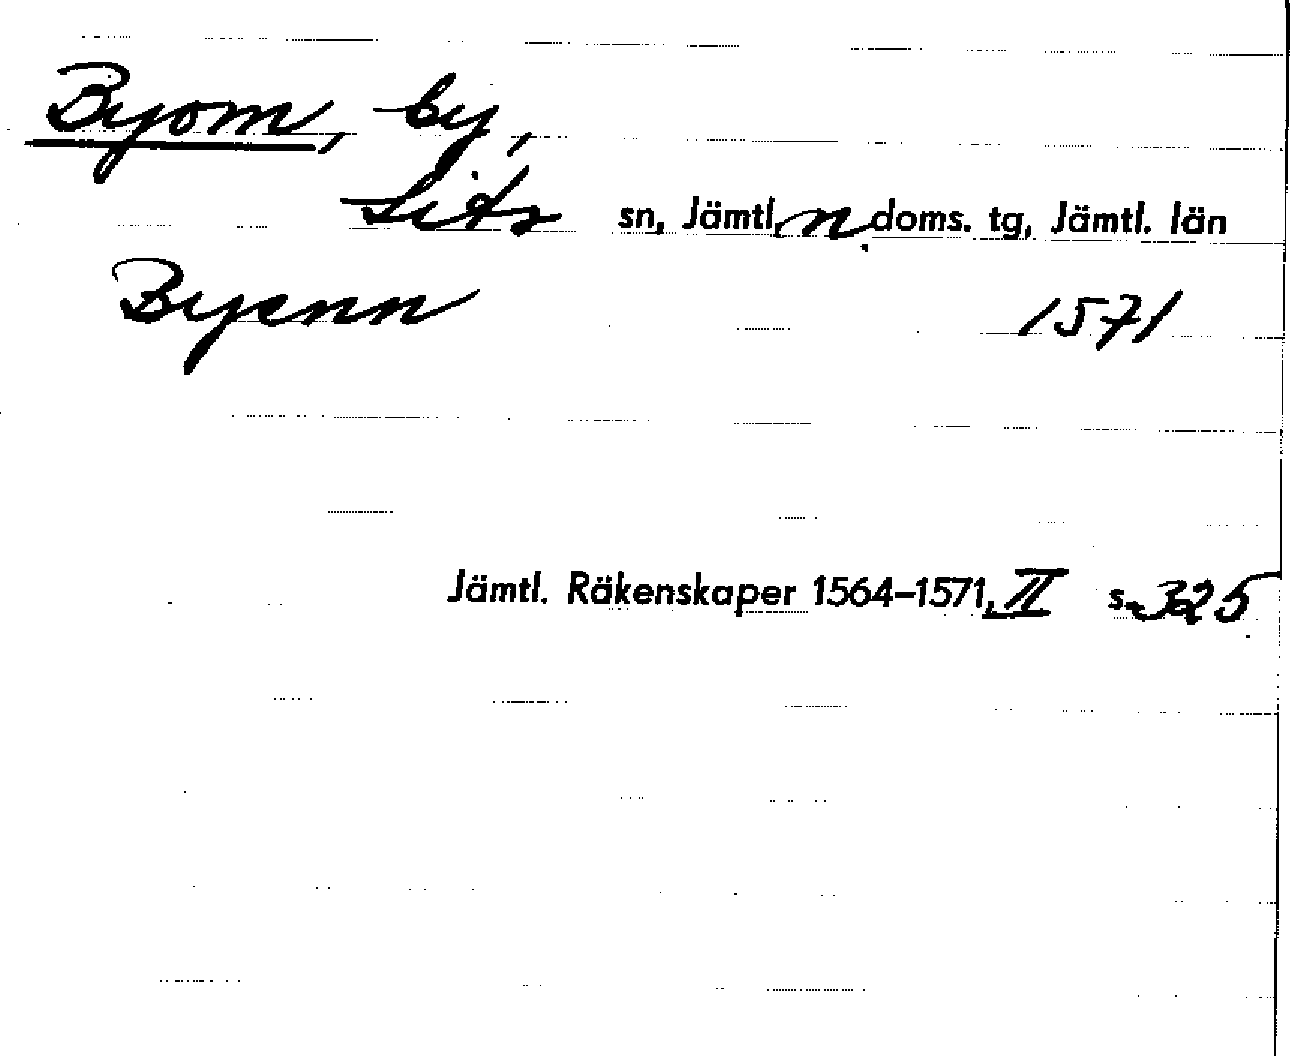 Byom, by,
Lits sn, Jämtl. n. doms. tg, Jämtl. län
Byenn 1571
Jämtl. Räkenskaper 1564–1571, II s. 325